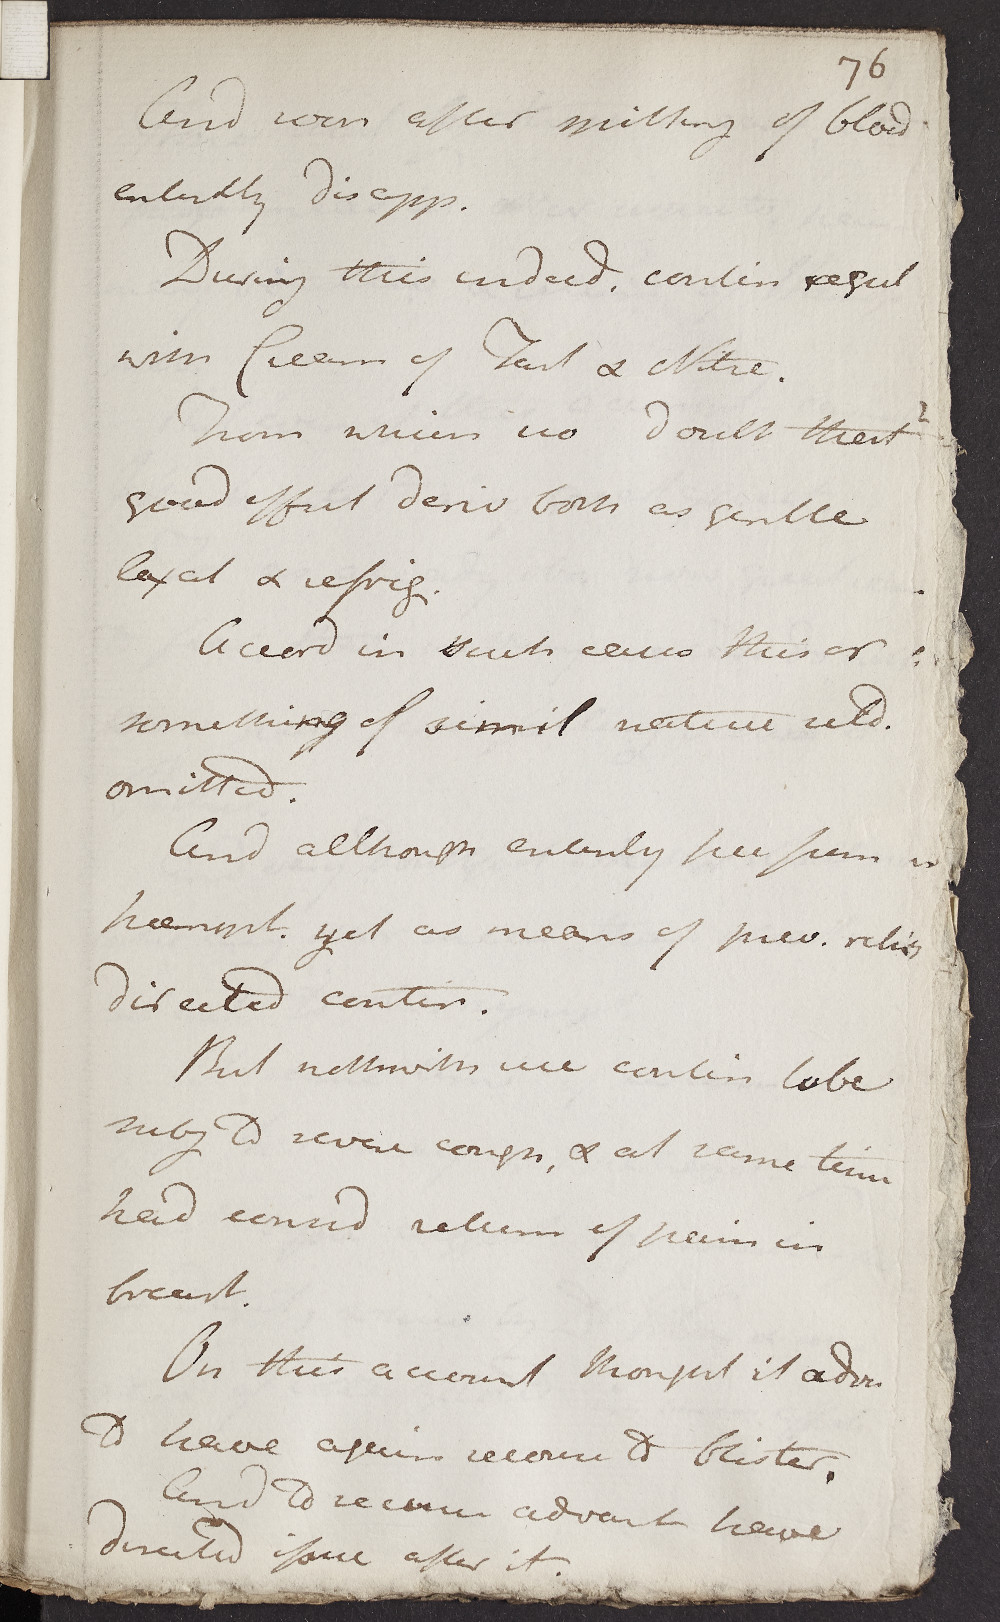 76
And soon after spitting of blood
entirely disapp.
During this indeed, contin regul
with Cream of Tart & Nitre.
From which no doubt that
good effect deriv both as gentle
laxat & refrig.
Accord in such cases this or
something of simil nature seld.
omitted.
And although entirely free from
haempt. yet as means of prev. return
directed contin.
But notwith use contin to be
subj to severe cough, & at same time
had consid return of pain in
breast.
On this account thought it advis
to have again recourse to blister.
And to secure advant have
directed issue after it.